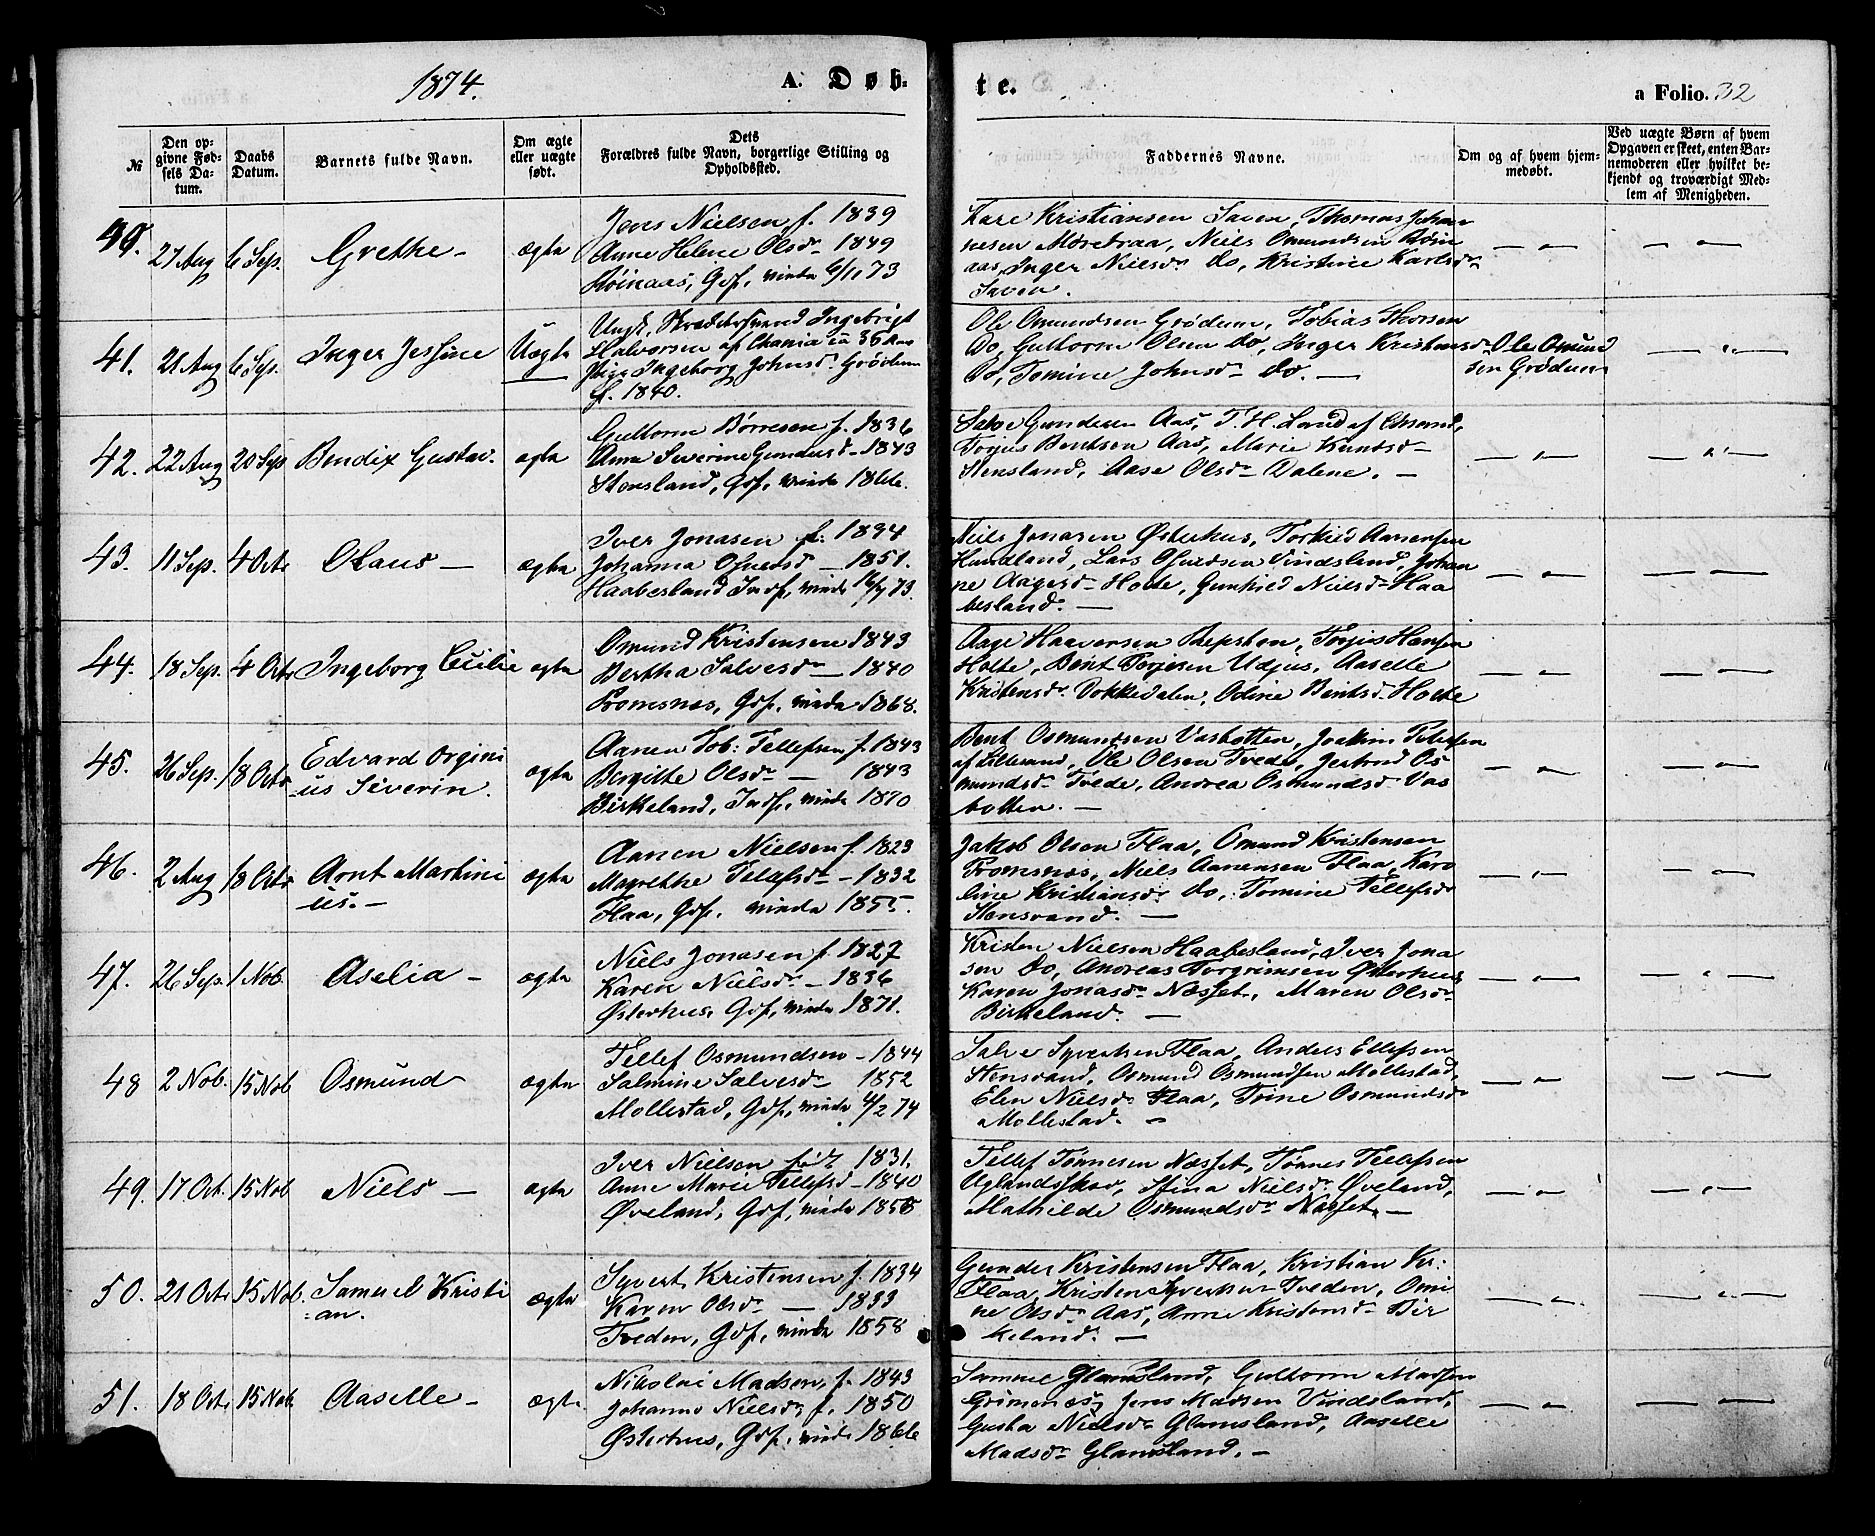 1874.
A. Døb-
te.
a Folio. 32
№
Den op-
givne Fød-
sels Da-
tum.
Daabs
Datum.
Barnets fulde Navn.
Om ægte
eller uægte
født.
Dets
Forældres fulde Navn, borgerlige Stilling og
Opholdssted.
Faddernes Navne.
Om og af hvem hjem-
medøbt.
Ved uægte Børn af hvem
Opgaven er skeet, enten Bar-
nemoderen eller hvilket be-
kjendt og troværdigt Med-
lem af Menigheden.
27 Aug 6 Sep. Grethe - ægte
Jens Nielsen f. 1839
Anne Helene Olsdr 1849
Gdf, viede 6/11 73
Kristiansen Saven, Thomas Johan
nesen Niels Omundsen
aas, Inger Nielsdr do, Kristine Karlsdr
Saven.
41. 21 Aug 6 Sep. Inger Jessine Uægte
Ungk. Ingebrigt
Halvorsen af Chania ca 35 Aar
Pige Ingeborg Johnsdr Grødum
f. 1840.
Ole Omundsen Grødum, Tobias Thorsen
Do, Guttorm Olsen do, Inger Kristensdr
Do, Tomine Johnsdr Do. —
Ole Omund
sen Grødum
42. 22 Aug 20 Sep Bendix Gustav. ægte
Guttorm Børresen f. 1836
Anne Severine Gundersd - 1843
Stensland, Gdf, viede 1866.
Salve Gundersen Aas, T. H. Land af Chrsand,
Torjus Bentsen Aas, Marie Knudsdr
Stensland, Aase Olsdr Dalene. —
43. 11 Sep. 4 Octr Olaus — ægte
Iver Jonasen f. 1834
Johanna — 1851.
Haabesland Indf, viede 16/7 73.
Niels Jonasen Østerhus, Torkild Aanensen
Hundland, Lars Vindsland, Johan
ne Aagesdr Holte, Gunhild Nielsdr Haa
besland. —
44. 18 Sep. 4 Octr Ingeborg Cecilie ægte
Osmund Kristensen 1843
Bertha Salvesdr — 1840
Tromsnæs, Gdf, viede 1868.
Aage Haaversen Repsten, Torjus Hansen
Holte, Bent Torjesen Udjus, Aaselle
Kristensdr Dokkedalen, Oline Bentsdr Holte
45. 26 Sep. 18 Octr Edvard Orgini
us Severin. ægte
Aanen Tob: Tellefsen f. 1843
Bergithe Olsdr — 1843
Birkeland, Indf, viede 1870
Bent Osmundsen Vasbotten, Joakim Petersen
af Lillesand, Ole Olsen Tvede, Jertrud Os
mundsdr Tvede, Andrea Osmundsdr Vas
botten. —
46. 2 Aug 18 Octr Arnt Martini
us. - ægte
Aanen Nielsen f. 1823
Magrethe Tellefsdr - 1832
Flaa, Gdf, viede 1855.
Jakob Olsen Flaa, Omund Kristensen
Tromsnæs, Niels Aanensen Flaa, Karo
line Kristiansdr do, Tomine Tellefsdr
Stensvand. —
47. 26 Sep. 1 Nob. Aselia - ægte
Niels Jonasen f. 1827
Karen Nielsdr - 1836
Østerhus, Gdf, viede 1871.
Kristen Nielsen Haabesland, Iver Jona
sen Do, Andreas Torgrimsen Østerhus
Karen Jonasdr Næsset, Maren Olsdr
Birkeland. —
48 2 Nob. 15 Nob Osmund ægte
Tellef Osmundsen - 1844
Salmine Salvesdr 1852
Mollestad, Gdf, viede 4/2 74
Salve Syvertsen Flaa, Anders Ellefsen
Stensvand, Osmund Osmundsen Mollestad,
Elen Nielsdr Flaa, Trine Osmundsdr
Mollestad. —
49. 17 Oct. 15 Nob Niels — ægte
Iver Nielsen født 1831.
Anne Marie Tellefsd - 1840
Øveland, Gdf, viede 1858
Tellef Tønnesen Næsset, Tønnes Tellefsen
Aglandsskar, Stina Nielsdr Øveland,
Mathilde Osmundsdr Næsset, —
50. 21 Octr 15 Nob. Samuel Kristi
-an. ægte
Syvert Kristensen f. 1834
Karen Olsdr — 1833
Tveden, Gdf, viede 1858
Gunder Kristensen Flaa, Kristian Kr:
Flaa, Kristen Syvertsen Tveden, Omi
ne Olsdr Aas, Anne Kristensdr Bir
keland. —
51. 18 Octr 15 Nob. Aaselle - ægte
Nikolai Madsen, f. 1843
Johanne Nielsdr f. 1850
Østerhus, Gdf, viede 1866
Samuel Glamsland, Guttorm Madsen
Grimenes, Jens Madsen Vindsland,
Gusta Nielsdr Glamsland, Aaselle
Madsdr Glamsland. —